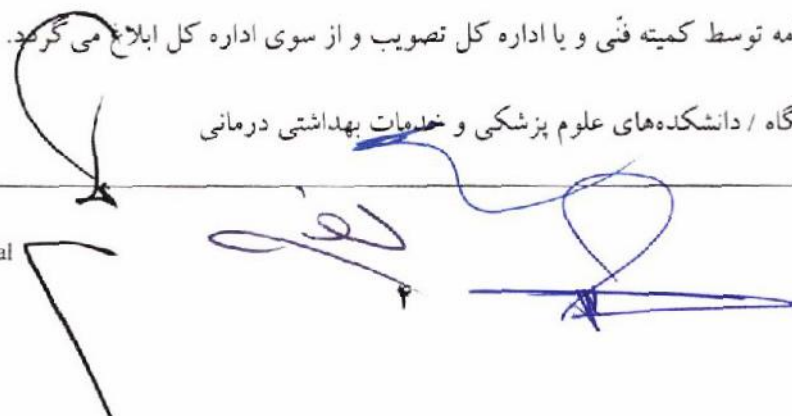 مه توسط کمیته فنّی و یا اداره کل تصویب و از سوی اداره کل ابلاغ می گردد.
گاه / دانشکده‌های علوم پزشکی و خدمات بهداشتی درمانی
al
۲